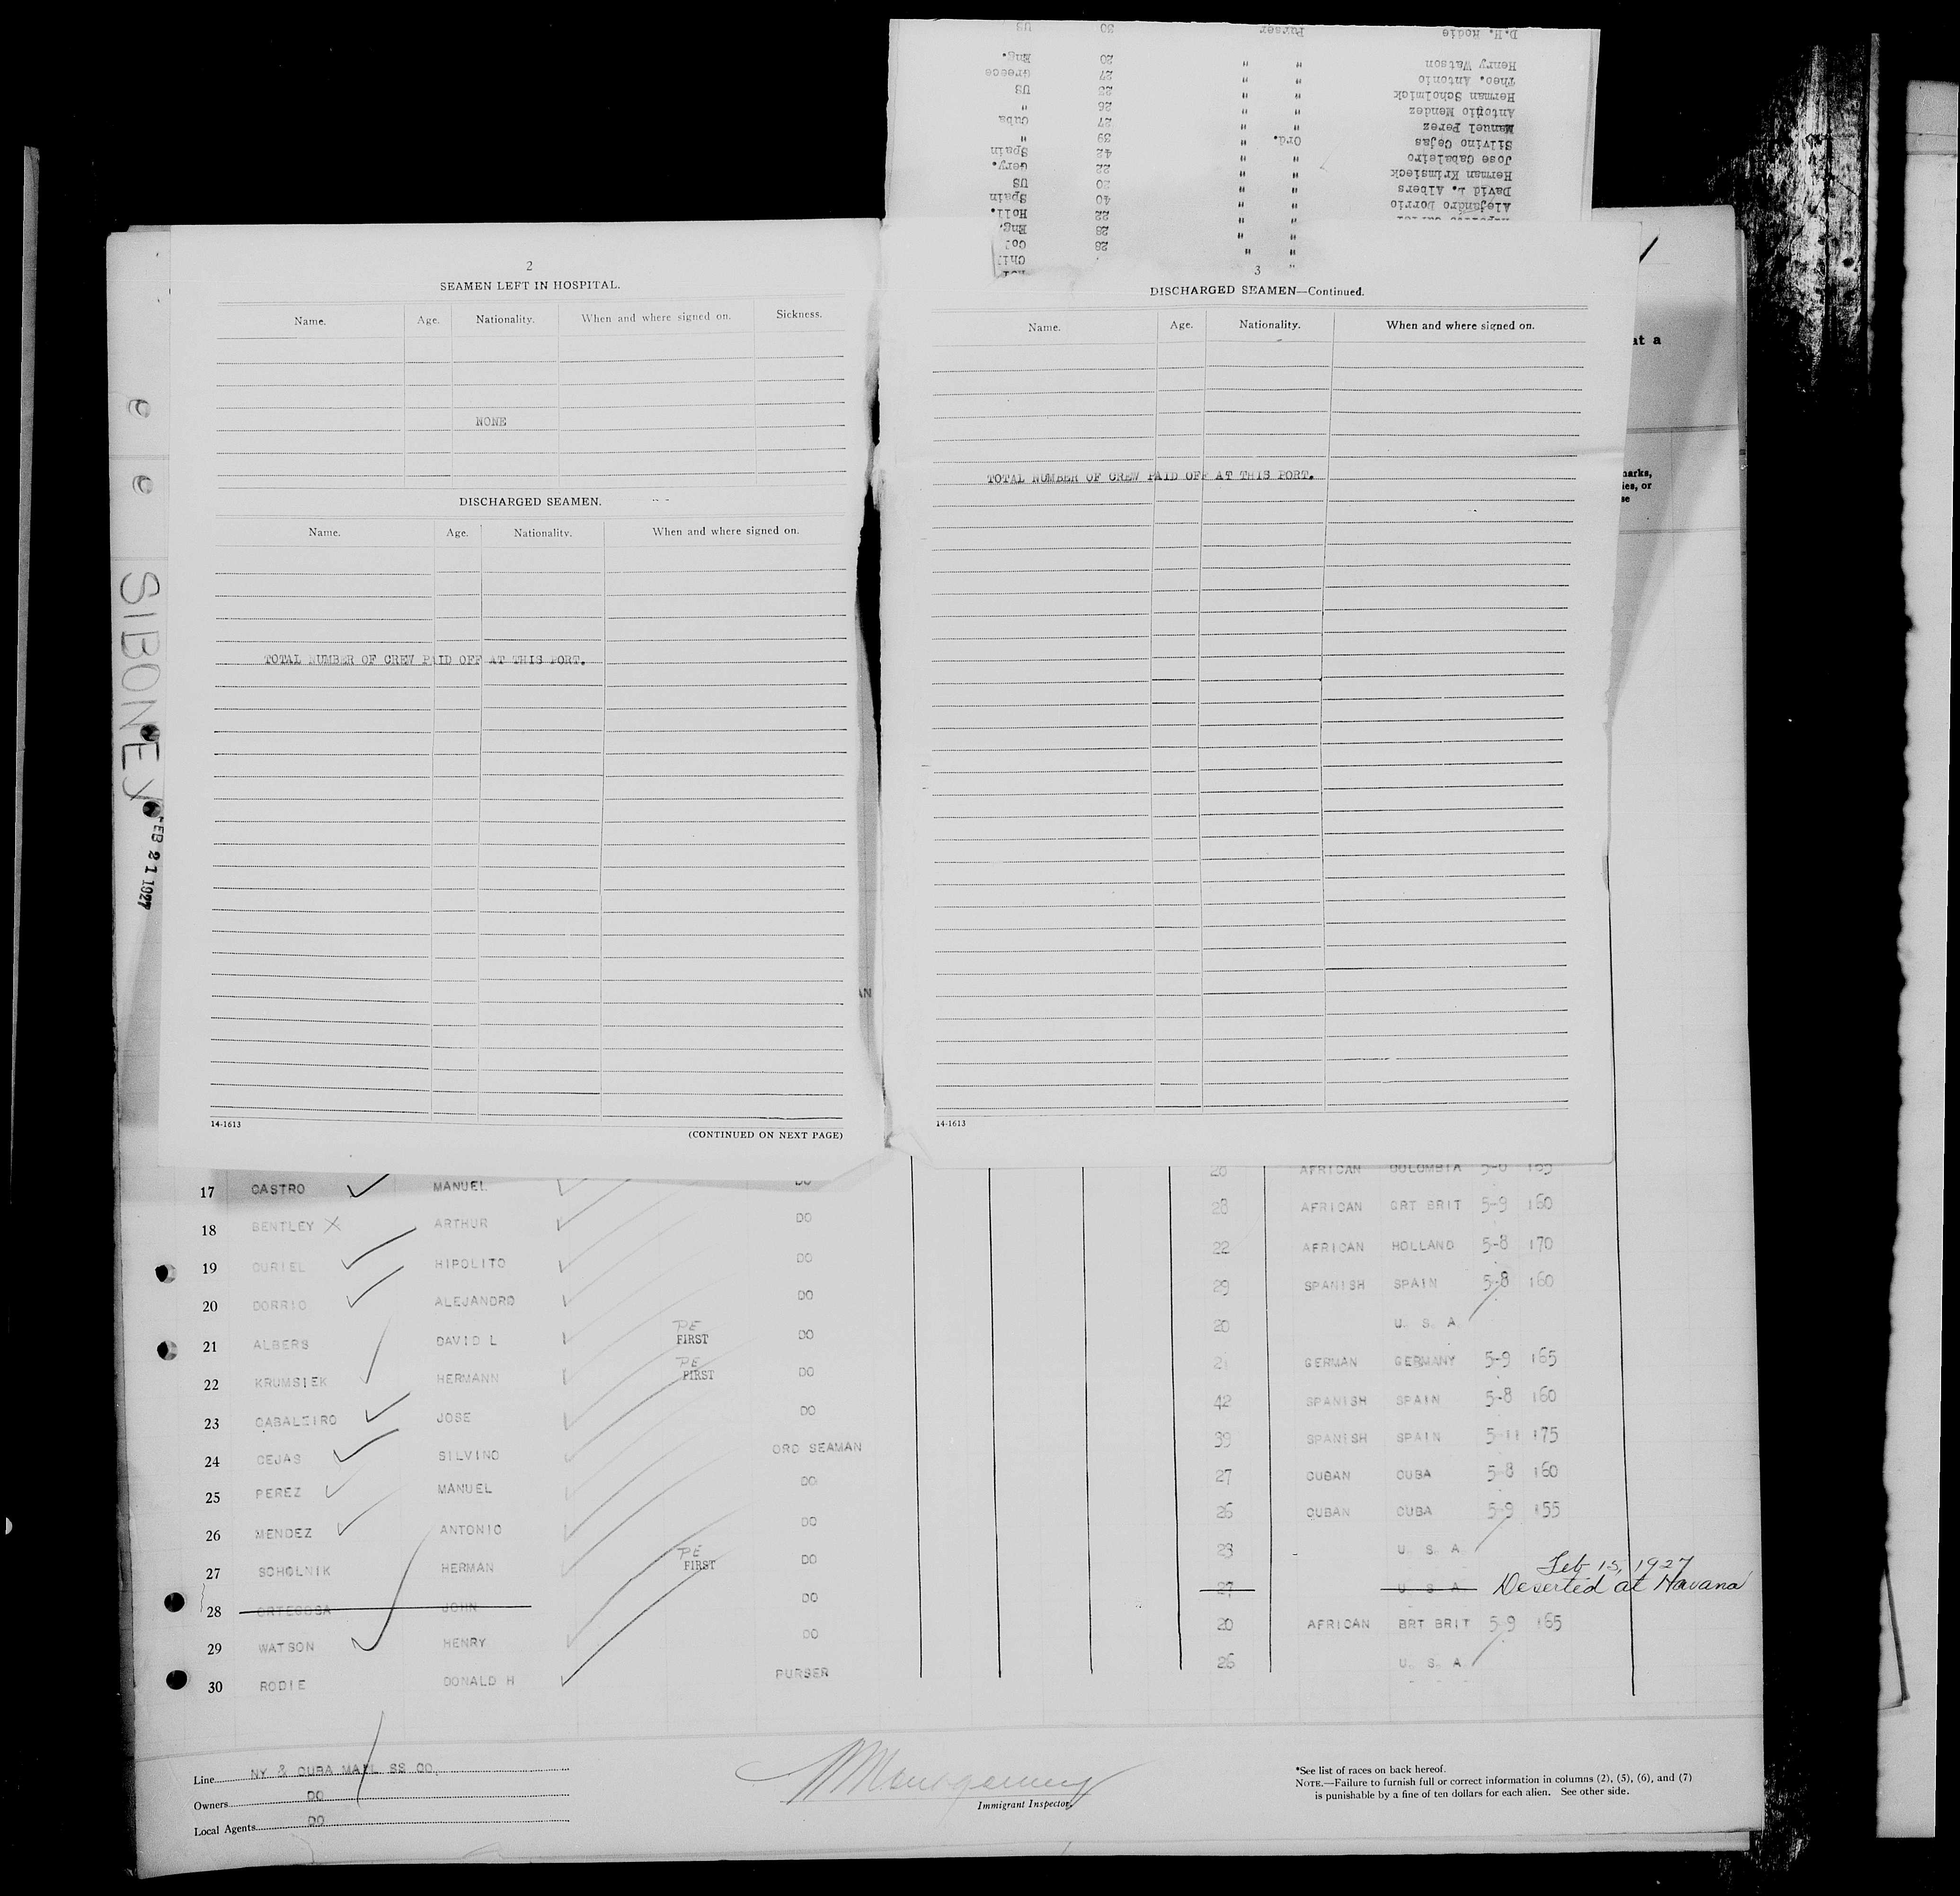 D.H. Rodie Purser 30 US
Henry Watson " " 20 Eng.
Theo. Antonio " " 27 Greece
Herman Scholmick " " 23 US
Antonio Mendez " " 26 "
Manuel Perez " " 27 Cuba
Silvino Cejas Ord. " 39 "
Jose Cabaleiro " " 42 Spain
Herman Krimsieck " " 22 Gery.
David L. Albers " " 20 US
Alejandro Dorrio " " 40 Spain
" " 22 Holl.
" " 28 Eng.
" " 28 Col
"
2
SEAMEN LEFT IN HOSPITAL.
Name. Age. Nationality. When and where signed on. Sickness.
NONE
DISCHARGED SEAMEN.
Name. Age. Nationality. When and where signed on.
TOTAL NUMBER OF CREW PAID OFF AT THIS PORT.
14-1613
(CONTINUED ON NEXT PAGE)
3
DISCHARGED SEAMEN—Continued.
Name. Age. Nationality. When and where signed on.
TOTAL NUMBER OF CREW PAID OFF AT THIS PORT.
14-1613
at a
marks,
ies, or
se
SIBONEY
FEB 21 1927
AN
17 CASTRO MANUEL DO 28 AFRICAN COLOMBIA 5-6 165
18 BENTLEY X ARTHUR DO 28 AFRICAN GRT BRIT 5-9 160
19 CURIEL HIPOLITO DO 22 AFRICAN HOLLAND 5-8 170
20 DORRIO ALEJANDRO DO 29 SPANISH SPAIN 5-8 160
21 ALBERS DAVID L PE FIRST DO 20 U. S. A.
22 KRUMSIEK HERMANN PE FIRST DO 21 GERMAN GERMANY 5-9 165
23 CABALEIRO JOSE DO 42 SPANISH SPAIN 5-8 160
24 CEJAS SILVINO ORD SEAMAN 39 SPANISH SPAIN 5-11 175
25 PEREZ MANUEL DO 27 CUBAN CUBA 5-8 160
26 MENDEZ ANTONIO DO 26 CUBAN CUBA 5-9 155
27 SCHOLNIK HERMAN PE FIRST DO 23 U. S. A.
Feb 15, 1927
28 ORTEGOSA JOHN DO 27 U S A Deserted at Havana
29 WATSON HENRY DO 20 AFRICAN BRT BRIT 5-9 165
30 RODIE DONALD H PURSER 26 U. S. A.
Line NY & CUBA MAIL SS CO.
Owners DO
Local Agents DO
Montgomery
Immigrant Inspector.
*See list of races on back hereof.
NOTE.—Failure to furnish full or correct information in columns (2), (5), (6), and (7)
is punishable by a fine of ten dollars for each alien. See other side.